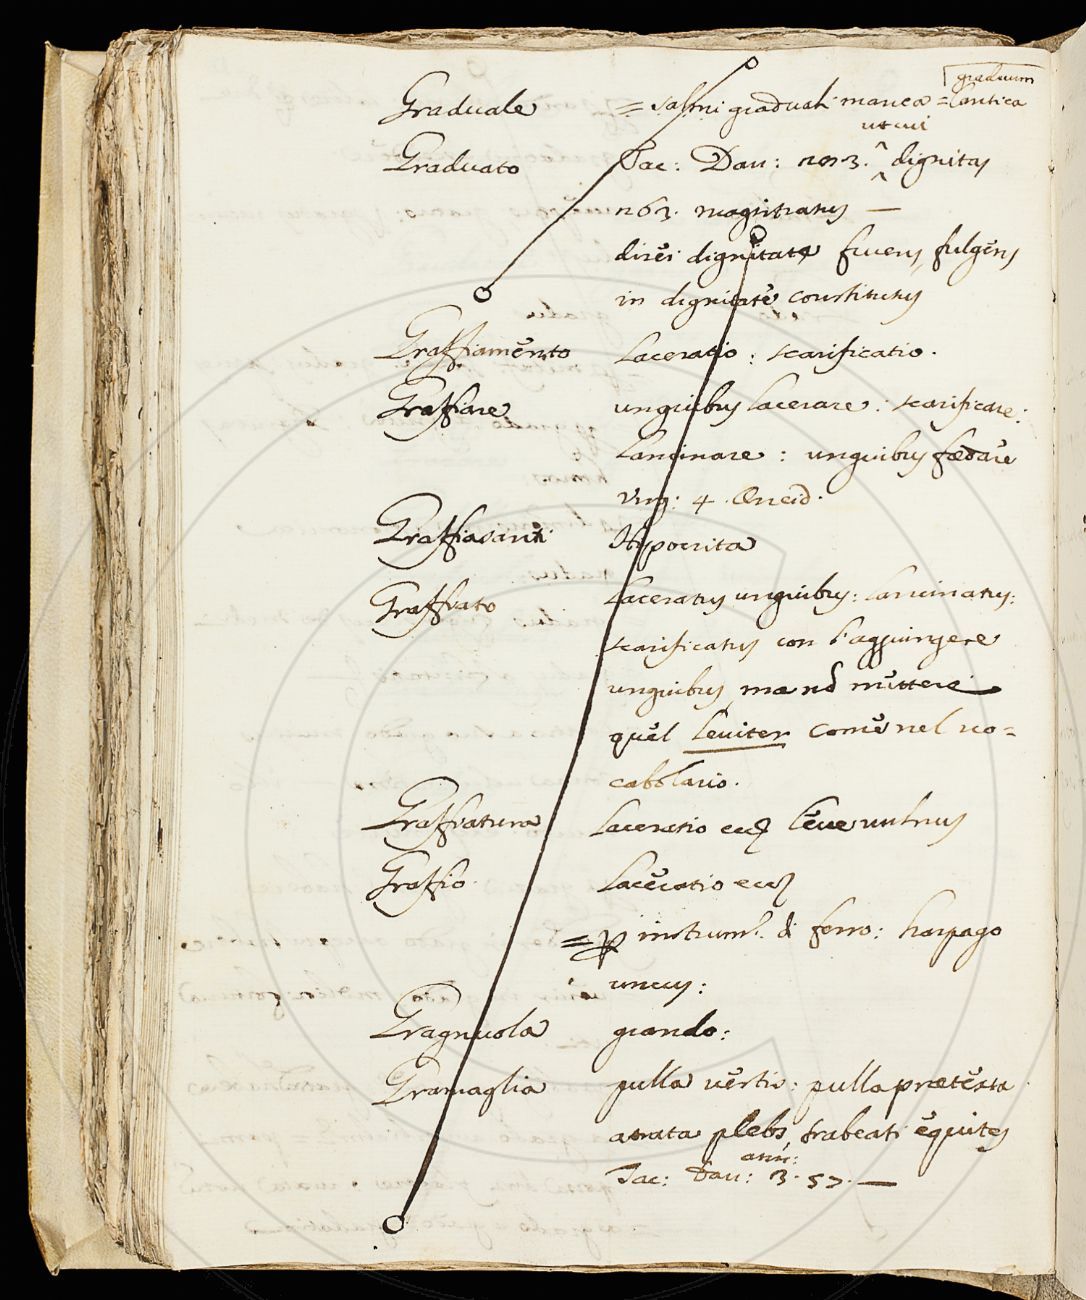 graduum
Graduale = salmi graduali manca = Cantica
ut cui
Graduato Tac: Dau: 203. dignitas
263. magistratus —
direi dignitate fuuens, fulgens
in dignitate constitutus
Graffiamento Laceratio: scarificatio.
Graffiare unguibus lacerare: scarificare:
Lancinare: unguibus fœdare
Virg: 4. Æneid.
Graffiasanti Hypocrita
Graffiato Laceratus unguibus: Lancinatus:
scarificatus con l'aggiungere
unguibus, ma nō mettere
quel leuiter come nel uo=
cabolario.
Graffiatura Laceratio leue uulnus
Graffio. Laceratio
= instrum. di ferro: harpago
uncus:
Gragnuola grando:
Gramaglia pulla vestis: pulla prætexta
atrata plebs, trabeati equites
ann:
Tac: Dau: 3. 57. —